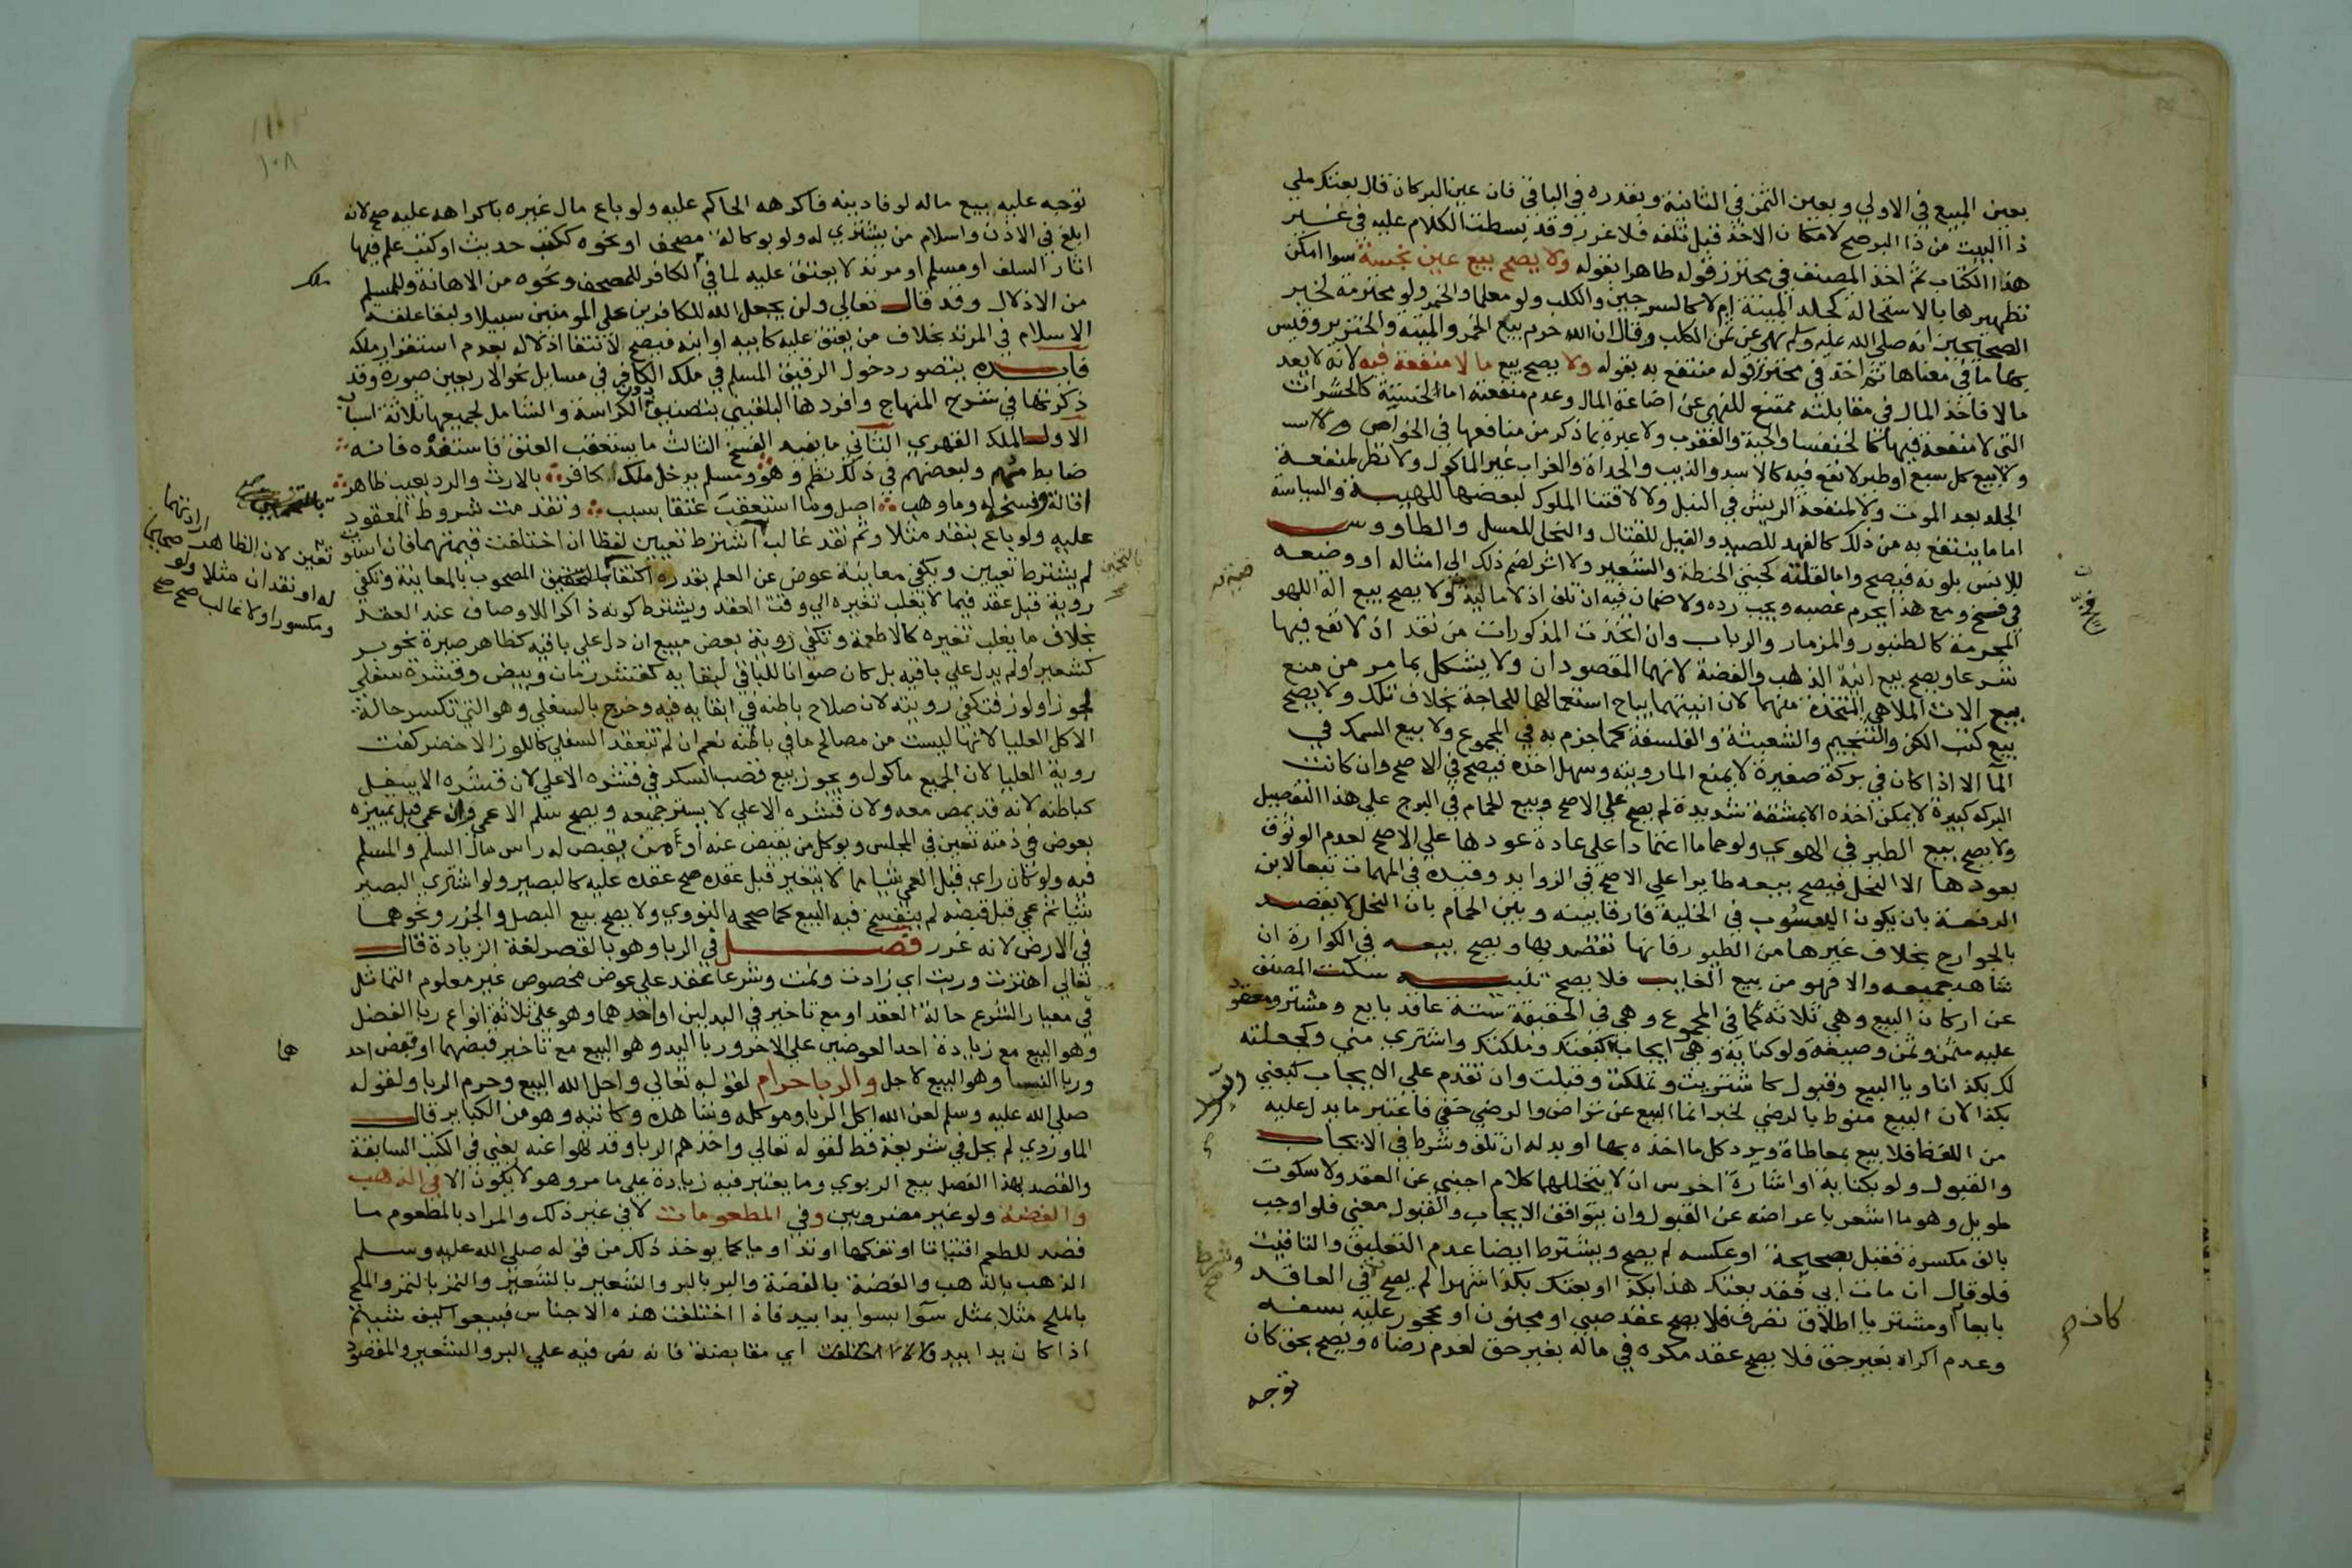 بعين المبيع في الاولي وبعين الثمن في الثانية وبقدره في الباقي فان عين البر كان قال بعتك ملي
ذا البيت من ذا البر صح لامكان الاخذ قبل تلفه فلا غرر وقد بسطت الكلام عليه في غير
هذا الكتاب ثم اخذ المصنف في محترز قوله طاهرا بقوله ولا يصح بيع عين نجسة سوا امكن
تطهيرها بالاستحالة كجلد الميتة ام لا كالسرجين والكلب ولو معلما والخمر ولو محترمة لخبر
الصحيحين انه صلي الله عليه وسلم نهي عن ثمن الكلب وقال ان الله حرم بيع الخمر والميته والخنزير وقيس
بها ما في معناها ثم اخذ في محترز قوله منتفع به بقوله ولا يصح بيع ما لا منفعة فيه لانه لا يعد
مالا فاخذ المال في مقابلته ممتنع للنهي عن اضاعة المال وعدم منفعته اما لخسته كالحشرات
التي لا منفعة فيها كالخنفسا والحية والعقرب ولا عبرة بما ذكر من منافعها في الخواص
ولا بيع كل سبع او طير لا نفع فيه كالاسد والذيب والحداة والغراب غير الماكول ولا نظر لمنفعة
الجلد بعد الموت ولا لمنفعة الريش في النبل ولا لاقتنا الملوك لبعضها للهيبة والسياسة
اما ما ينتفع به من ذلك كالفهد للصيد والفيل للقتال والنحل للعسل والطاووس
للانس بلونه فيصح واما لقلته كحبتي الحنطة والشعير ولا اثر لضم ذلك الي امثاله او وضعه
في فسخ ومع هذا يحرم غصبه ويجب رده ولا ضمان فيه ان تلف اذ لا مالية ولا يصح بيع الة اللهو
المحرمة كالطنبور والمزمار والرباب وان اتخذت المذكورات من نقد اذ لا نفع فيها
شرعا ويصح بيع انية الذهب والفضة لانهما المقصودان ولا يشكل بما مر من منع
بيع الات الملاهي المتخذة منهما لان انيتهما يباح استعمالهما للحاجة بخلاف تلك ولا يصح
بيع كتب الكفر والتنجيم والشعبثة والفلسفة كما جزم به في المجموع ولا بيع السمك في
الما الا اذا كان في بركة صغيرة لا يمنع الما رويته وسهل اخذه فيصح في الاصح وان كانت
البركه كبيرة لا يمكن اخذه الا بمشقة شديدة لم يصح علي الاصح وبيع الحمام في البرج علي هذا التفصيل
ولا يصح بيع الطير في الهوي ولو حماما اعتمادا علي عادة عودها علي الاصح لعدم الوثوق
بعودها الا النحل فيصح بيعه طايرا علي الاصح في الزوايد وقيده في المهمات تبعا لابن
الرفعة بان يكون اليعسوب في الخلية فارقا بينه وبين الحمام بان النحل لا يقصد
بالجوارح بخلاف غيرها من الطيور فانها تقصد بها ويصح بيعه في الكوارة ان
شاهد جميعه والا فهو من بيع الغايب فلا يصح تنبيه سكت المصنف
عن اركان البيع وهي ثلاثة كما في المجموع وهي في الحقيقة ستة عاقد بايع ومشتر ومعقود
عليه مثمن وثمن وصيغة ولو كناية وهي ايجاب كبعتك وملكتك واشتري مني وكجعلته
لك بكذا ناويا البيع وقبول كاشتريت وتملكت وقبلت وان تقدم علي الايجاب كبعني
بكذا لان البيع منوط بالرضي لخبر انما البيع عن تراض والرضي خفي فاعتبر ما يدل عليه
من اللفظ فلا بيع بمعاطاة ويرد كل ما اخذه بها او بدله ان تلف وشرط في الايجاب
والقبول ولو بكناية او اشارة اخرس ان لا يتخللهما كلام اجنبي عن العقد ولا سكوت
طويل وهو ما اشعر باعراضه عن القبول وان يتوافق الايجاب والقبول معني فلو اوجب
بالف مكسرة فقبل بصحيحة او عكسه لم يصح ويشترط ايضا عدم التعليق والتاقيت
فلو قال ان مات ابي فقد بعتك هذا بكذا او بعتك بكذا شهرا لم يصح في العاقد
بايعا او مشتريا اطلاق تصرف فلا يصح عقد صبي او مجنون او محجور عليه بسفه
وعدم اكراه بغير حق فلا يصح عقد مكره في ماله بغير حق لعدم رضاه ويصح بحق كان
توجه
كان
ويشترط
١٠٨
توجه عليه بيع ماله لوفا دينه فاكرهه الحاكم عليه ولو باع مال غيره باكراهه عليه صح لانه
ابلغ في الاذن واسلام من يشتري له ولو بوكالة مصحف او نحوه ككتب حديث او كتب علم فيها
اثار السلف او مسلم او مرتد لا يعتق عليه لما في الكافر للمصحف ونحوه من الاهانة وللمسلم
من الاذلال وقد قال تعالي ولن يجعل الله للكافرين علي المومنين سبيلا ولبقا علقة
الاسلام في المرتد بخلاف من يعتق عليه كابيه او ابنه فيصح لانتفا اذلاله بعدم استقرار ملكه
فايده يتصور دخول الرقيق المسلم في ملك الكافر في مسايل نحو الاربعين صورة وقد
ذكرتها في شرح المنهاج وافردها البلقيني بتصنيف دون الكراسة والشامل لجميعها ثلاثة اسباب
الاول الملك القهري الثاني ما يفيد الفسخ الثالث ما يستعقب العتق فاستفده فانه
ضابط مهم ولبعضهم في ذلك نظم وهو ومسلم يدخل ملك كافر بالارث والرد بعيب ظاهر
اقالة وفسخه وما وهب اصل وما استعقب عتقا بسبب وتقدمت شروط المعقود
عليه ولو باع بنقد مثلا وثم نقد غالب اشترط تعيين لفظا ان اختلفت قيمتهما فان استوت
لم يشترط تعيين ويكفي معاينة عوض عن العلم بقدره اكتفا المصحوب بالمعاينة وتكفي
روية قبل عقد فيما لا يغلب تغيره الي وقت العقد ويشترط كونه ذاكرا للاوصاف عند العقد
بخلاف ما يغلب تغيره كالاطعمة وتكفي روية بعض مبيع ان دل علي باقيه كظاهر صبرة نحو بر
كشعير او لم يدل علي باقيه بل كان صوانا للباقي لبقايه كقشر رمان وبيض وقشرة سفلي
لجوز او لوز فتكفي رويته لان صلاح باطنه في ابقايه فيه وخرج بالسفلي وهو التي تكسر حالة
الاكل العليا لانها ليست من مصالح ما في باطنه نعم ان لم تنعقد السفلي كاللوز الاخضر كفت
روية العليا لان الجميع ماكول ويجوز بيع قصب السكر في قشره الاعلي لان قشره الاسفل
كباطنه لانه قد يمص معه ولان قشره الاعلي لا يستر جميعه ويصح سلم الاعمي وان عمي قبل تمييزه
بعوض في ذمته تعين في المجلس ويوكل من يقبض عنه او من يقبض له راس مال السلم والمسلم
فيه ولو كان راي قبل العمي شيا مما لا يتغير قبل عقده صح عقده عليه كالبصير ولو اشتري البصير
شيا ثم عمي قبل قبضه لم ينفسخ فيه البيع كما صححه النووي ولا يصح بيع البصل والجزر ونحوهما
في الارض لانه غرر فصل في الربا وهو بالقصر لغة الزيادة قال
تعالي اهتزت وربت اي زادت ونمت وشرعا عقد علي عوض مخصوص غير معلوم التماثل
في معيار الشرع حالة العقد او مع تاخير في البدلين او احدهما وهو علي ثلاثة انواع ربا الفضل
وهو البيع مع زيادة احد العوضين علي الاخر وربا اليد وهو البيع مع تاخير قبضهما او قبض احد
وربا النسا وهو البيع لاجل والربا حرام لقوله تعالي واحل الله البيع وحرم الربا ولقوله
صلي الله عليه وسلم لعن الله اكل الربا وموكله وشاهده وكاتبه وهو من الكباير قال
الماوردي لم يحل في شريعة قط لقوله تعالي واخذهم الربا وقد نهوا عنه يعني في الكتب السابقة
والقصد بهذا الفصل بيع الربوي وما يعتبر فيه زيادة علي ما مر وهو لا يكون الا في الذهب
والفضة ولو غير مضروبين وفي المطعومات لا في غير ذلك والمراد بالمطعوم ما
قصد للطعم اقتياتا او تفكها او تداويا كما يوخذ ذلك من قوله صلي الله عليه وسلم
الذهب بالذهب والفضة بالفضة والبر بالبر والشعير بالشعير والتمر بالتمر والملح
بالملح مثلا بمثل سوا بسوا يدا بيد فاذا اختلفت هذه الاجناس فبيعوا كيف شيتم
اذا كان يدا بيد اي مقابضة فانه نص فيه علي البر والشعير والمقصود
ملك
تعين لان الظاهر ارادتهما
له او نقدان مثلا ولو صحيحا
ومكسرا ولا غالب
هما